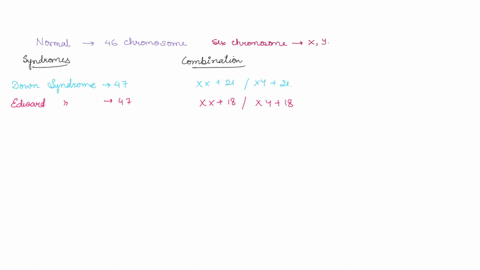 Normal → 46 chromosome   Sex chromosome → X, Y.
Syndromes   Combination
Down Syndrome → 47   XX + 21 / XY + 21.
Edward " → 47   XX + 18 / XY + 18